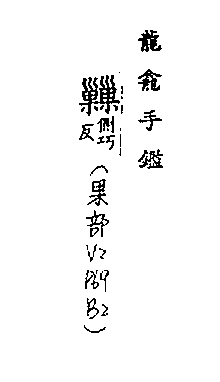 龍龕手鑑
側巧反(果部V2 P69 B2)